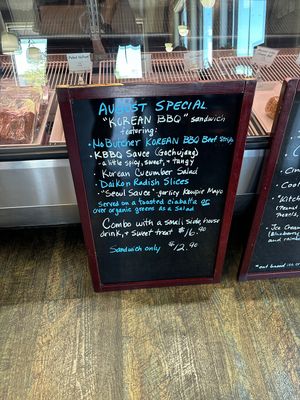 AUGUST SPECIAL
"KOREAN BBQ" sandwich
featuring:
• No Butcher KOREAN BBQ Beef Strips
• KBBQ Sauce (Gochujang)
- a little spicy, sweet, + tangy
• Korean Cucumber Salad
• Daikon Radish Slices
• "Seoul Sauce" - garlicy Kewpie Mayo
Served on a toasted ciabatta OR
over organic greens as a Salad
Combo with a small side, house
drink, + sweet treat $16.90
Sandwich only $12.90
• Cr
• Coo
• "Kitch
• Ice Crea
(Blueberry
and rainb